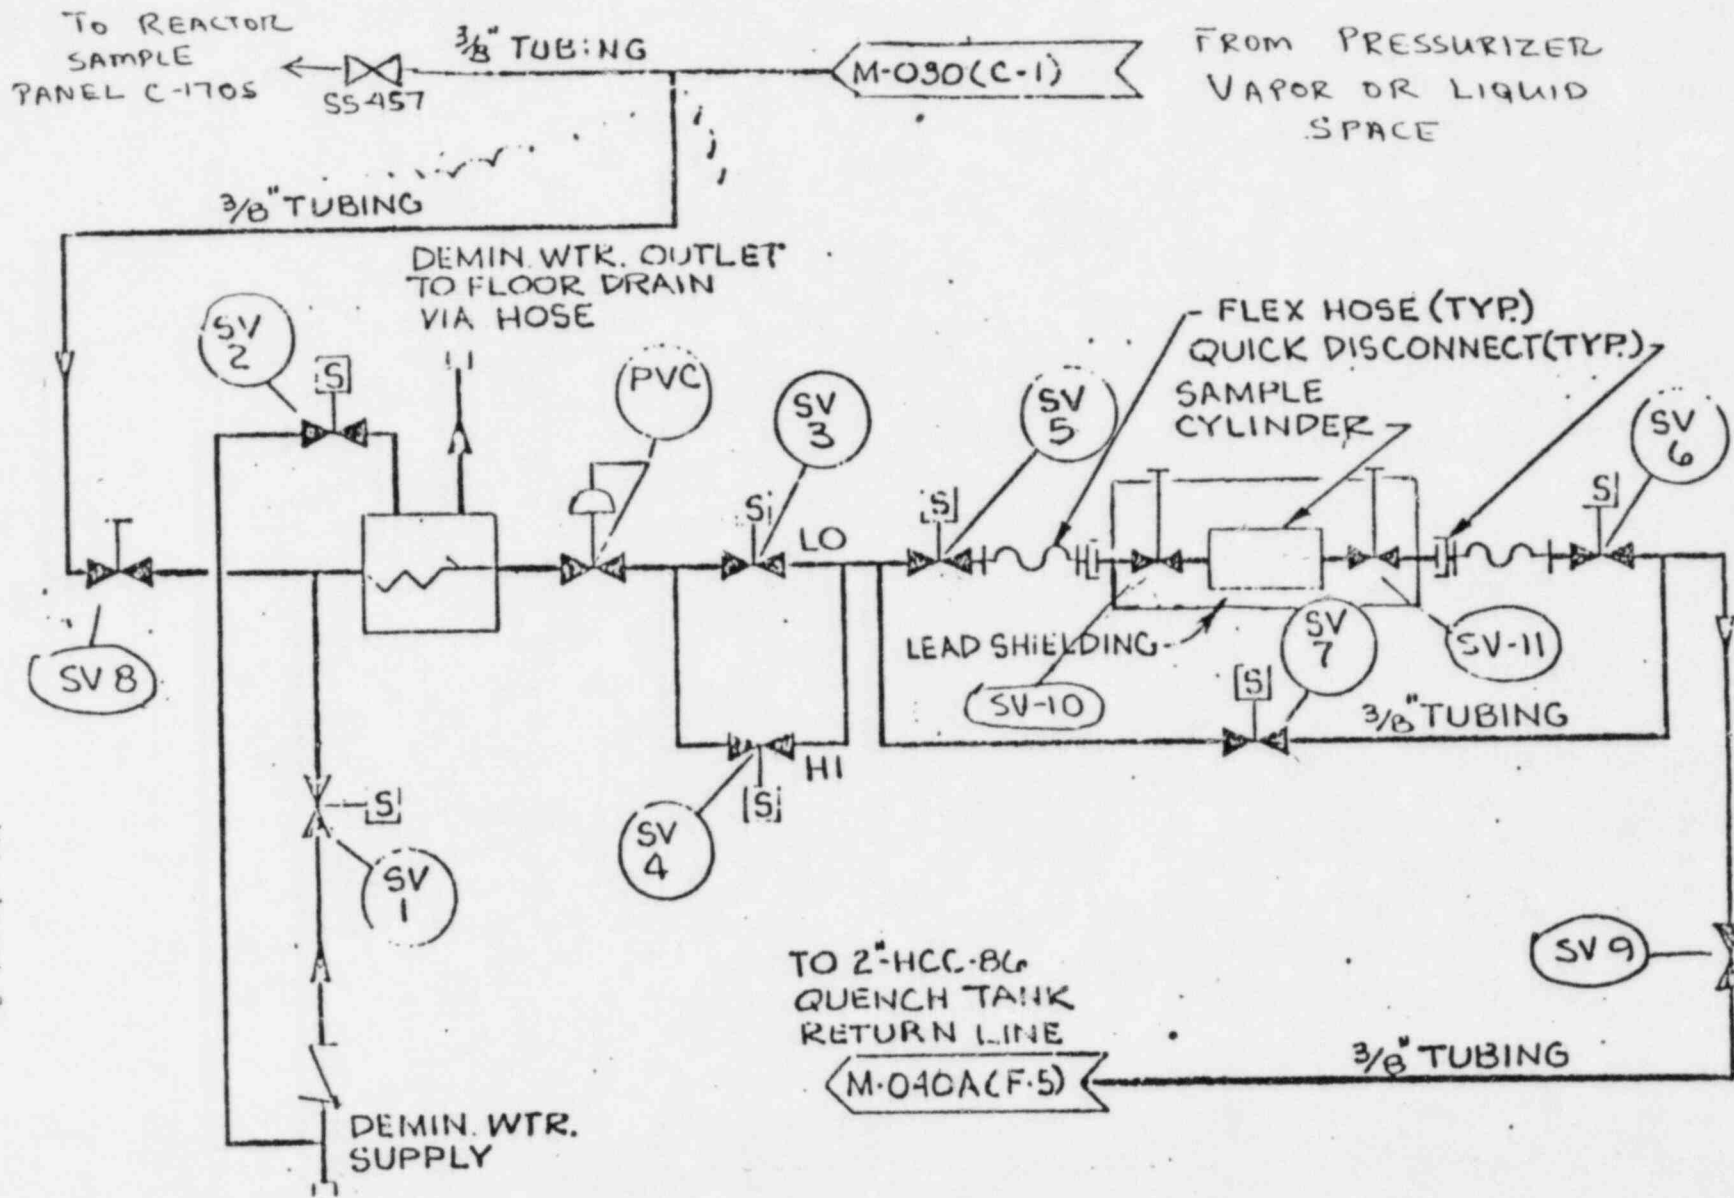 TO REACTOR
SAMPLE
PANEL C-170S
SS-457
3/8" TUBING
M-030(C-1)
FROM PRESSURIZER
VAPOR OR LIQUID
SPACE
3/8" TUBING
DEMIN. WTR. OUTLET
TO FLOOR DRAIN
VIA HOSE
FLEX HOSE (TYP.)
QUICK DISCONNECT(TYP.)
SAMPLE
CYLINDER
SV
2
S
PVC
SV
3
S
LO
SV
5
S
SV
6
S
SV 8
LEAD SHIELDING
SV-10
SV
7
S
SV-11
3/8" TUBING
HI
S
SV
4
S
SV
1
TO 2"-HCC-86
QUENCH TANK
RETURN LINE
SV 9
M-040A(F-5)
3/8" TUBING
DEMIN. WTR.
SUPPLY